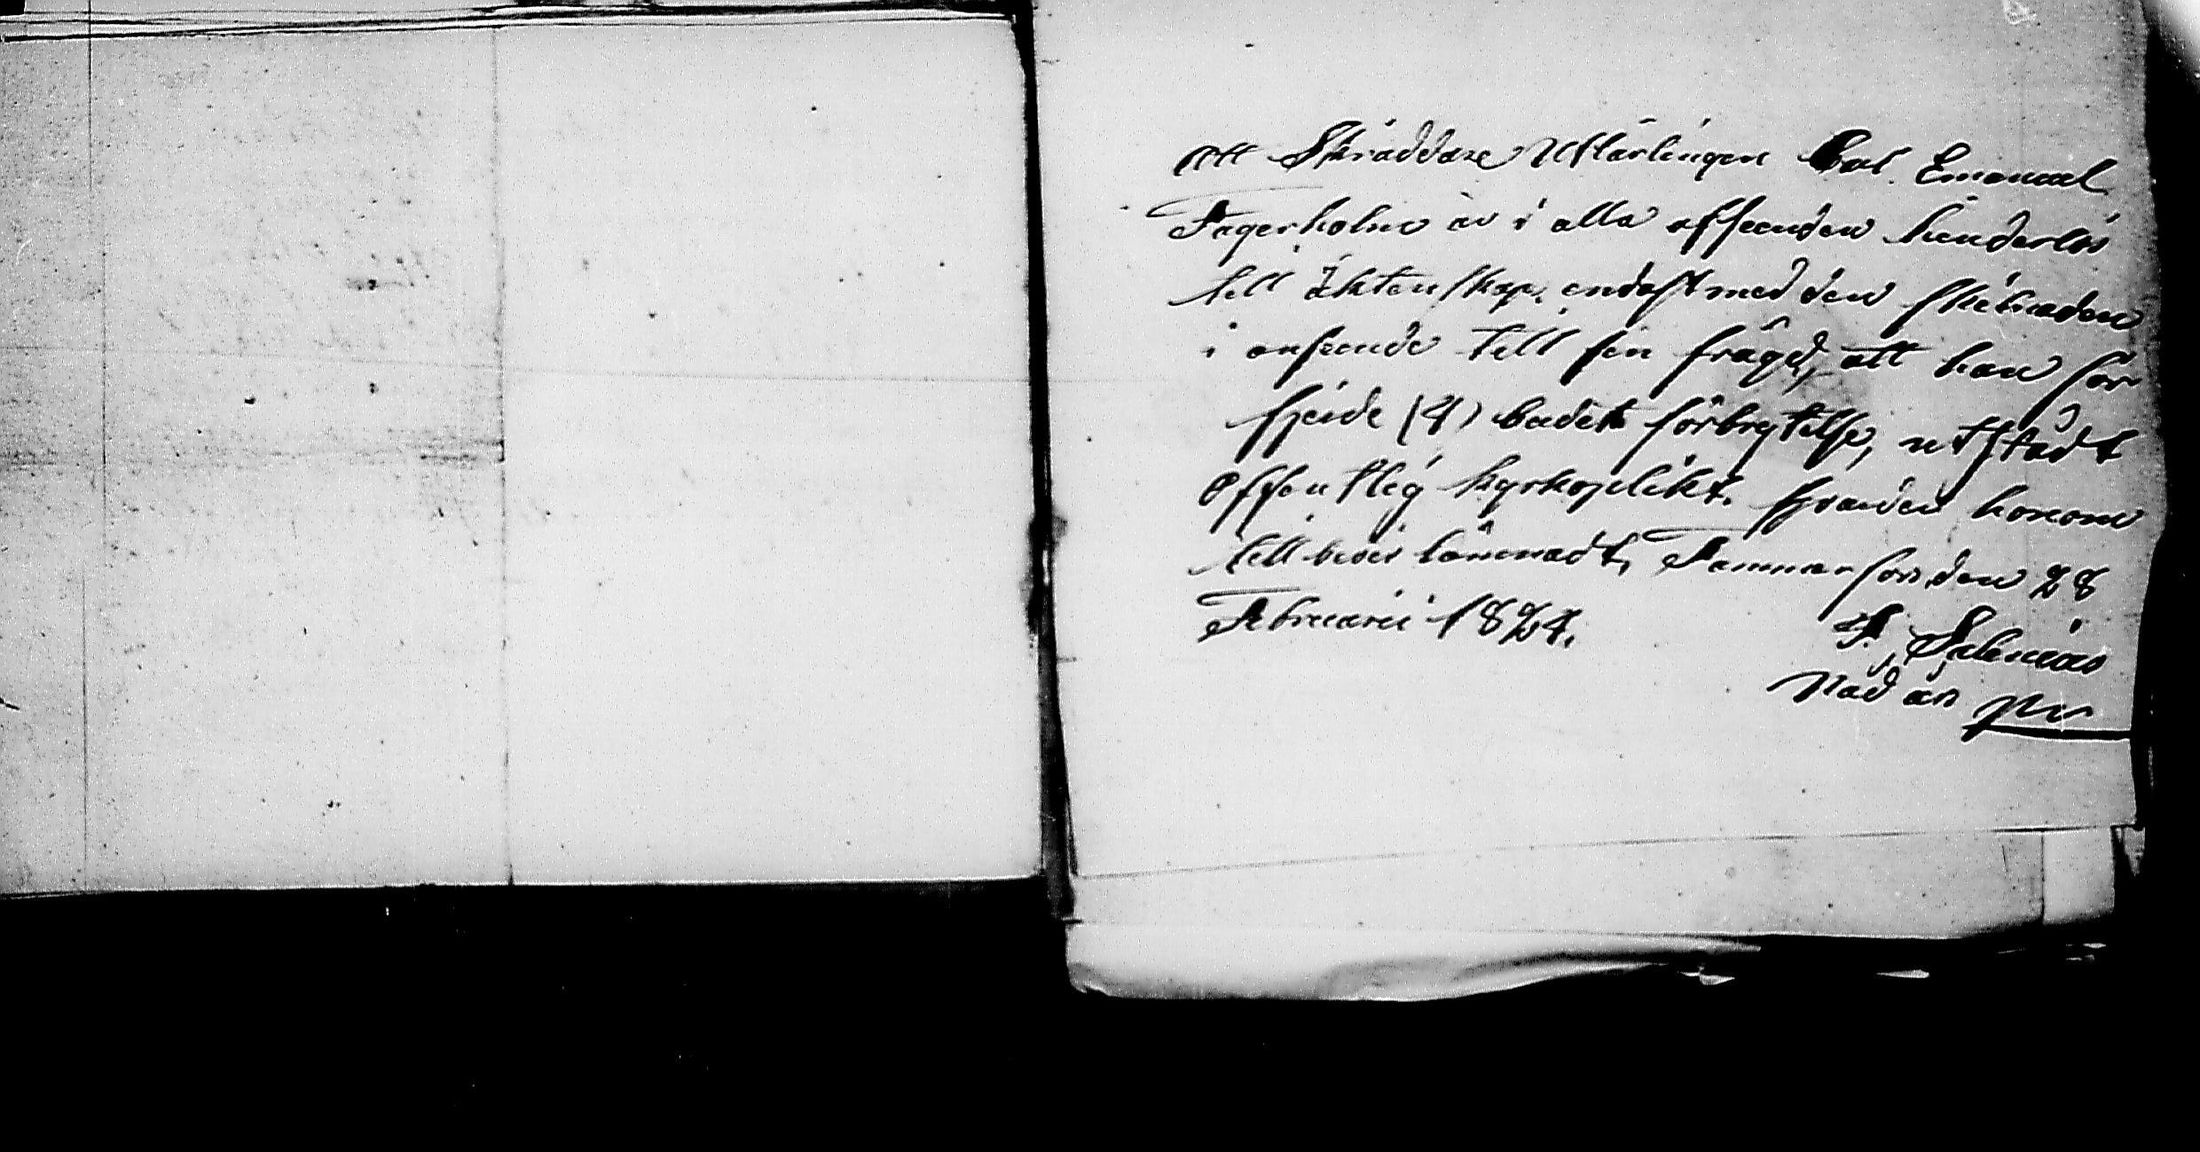 Att Skräddare Utlärlingen Carl Emanuel
Fagerholm är i alla afseenden hinderlös
till Äktenskap, endast med den skilnaden
i anseende till sin frägd, att han för
fjerde (4) budets förbrytelse, utstådt
Offentlig kyrkoplikt. honom
till bevis lämnadt, Tammerfors den 28
Februarii 1824.
Salenius
Nåd år Pr